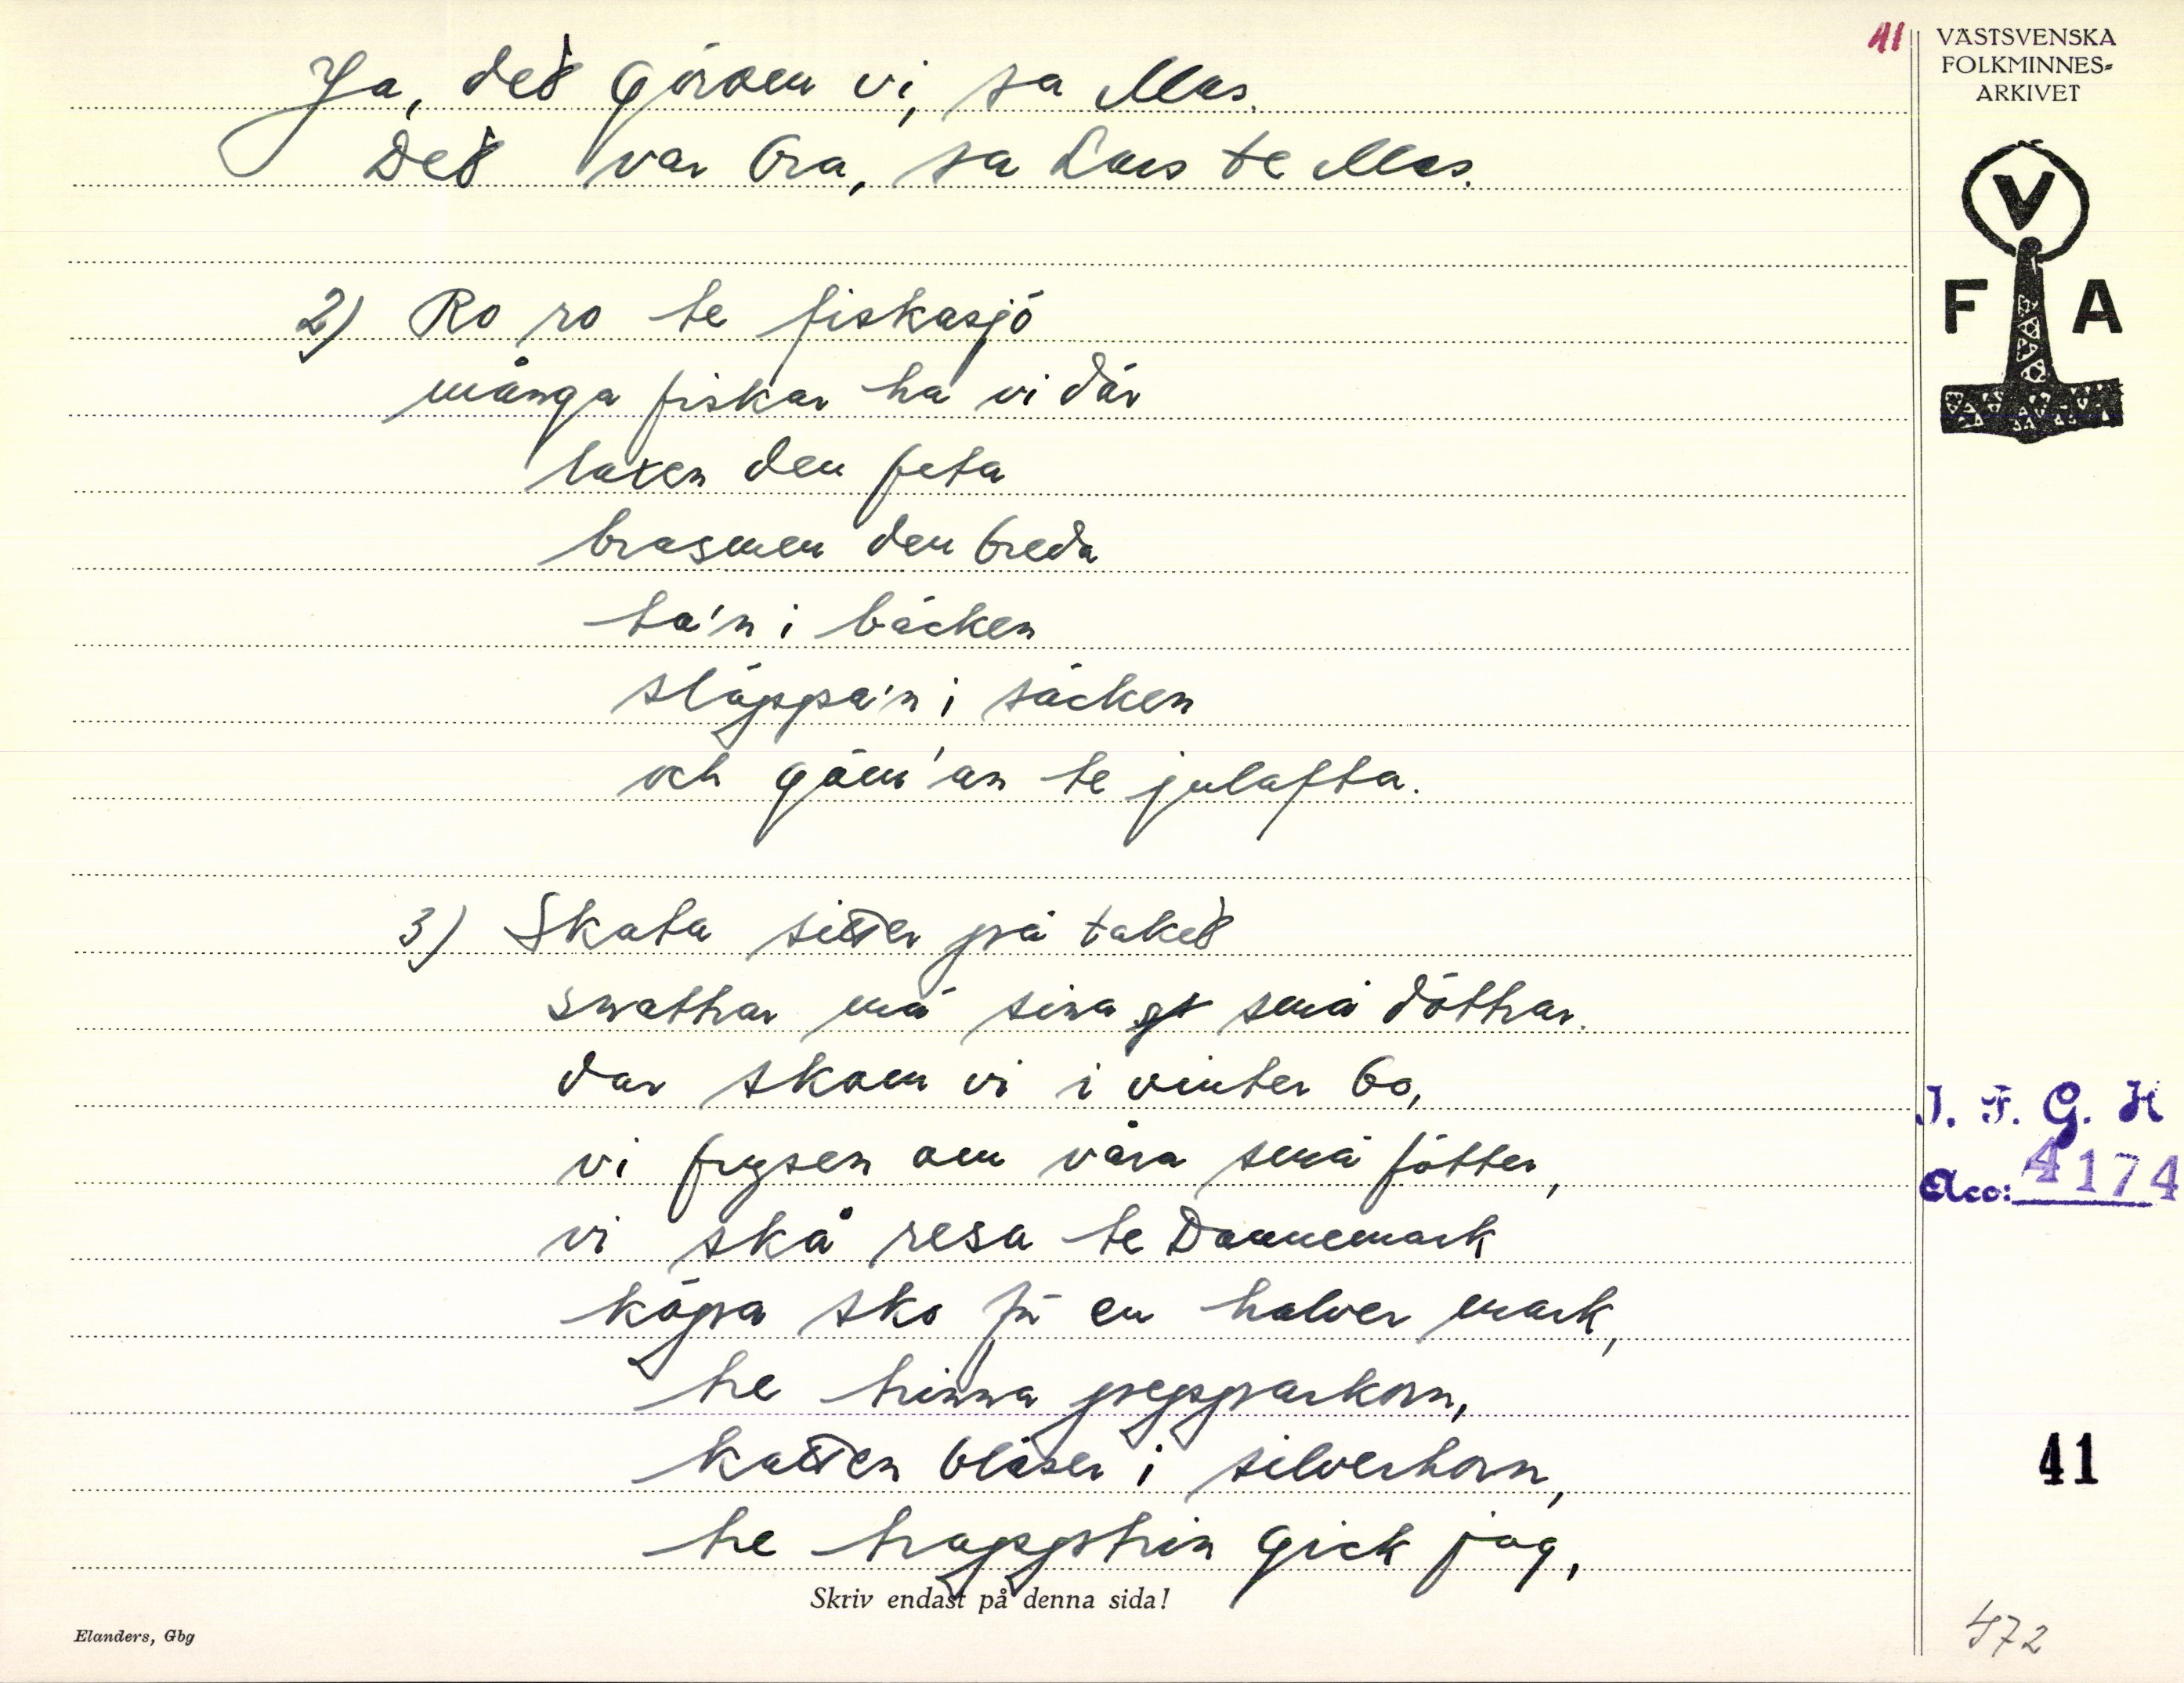 41
VÄSTSVENSKA
FOLKMINNES-
ARKIVET
V
F A
Ja, ded görom vi, sa Mas.
Ded var bra, sa Lars te Mas.
2) Ro ro te fiskasjö
många fiskar ha vi där
laxen den feta
brasmen den breda
ta'n i bäcken
släppa'n i säcken
och göm'an te julafta.
3) Skata sitter på taked
snattrar mä sina små döttrar.
dar skom vi i vinter bo,
vi frysen om våra små fötter,
vi skå resa te Dannemark
köpa sko för en halver mark,
tre trinna pepparkorn,
katten blåser i silverhorn,
tre trappstrin gick jag,
I. F. G. H
Acc: 4174
41
Skriv endast på denna sida!
Elanders, Gbg
472